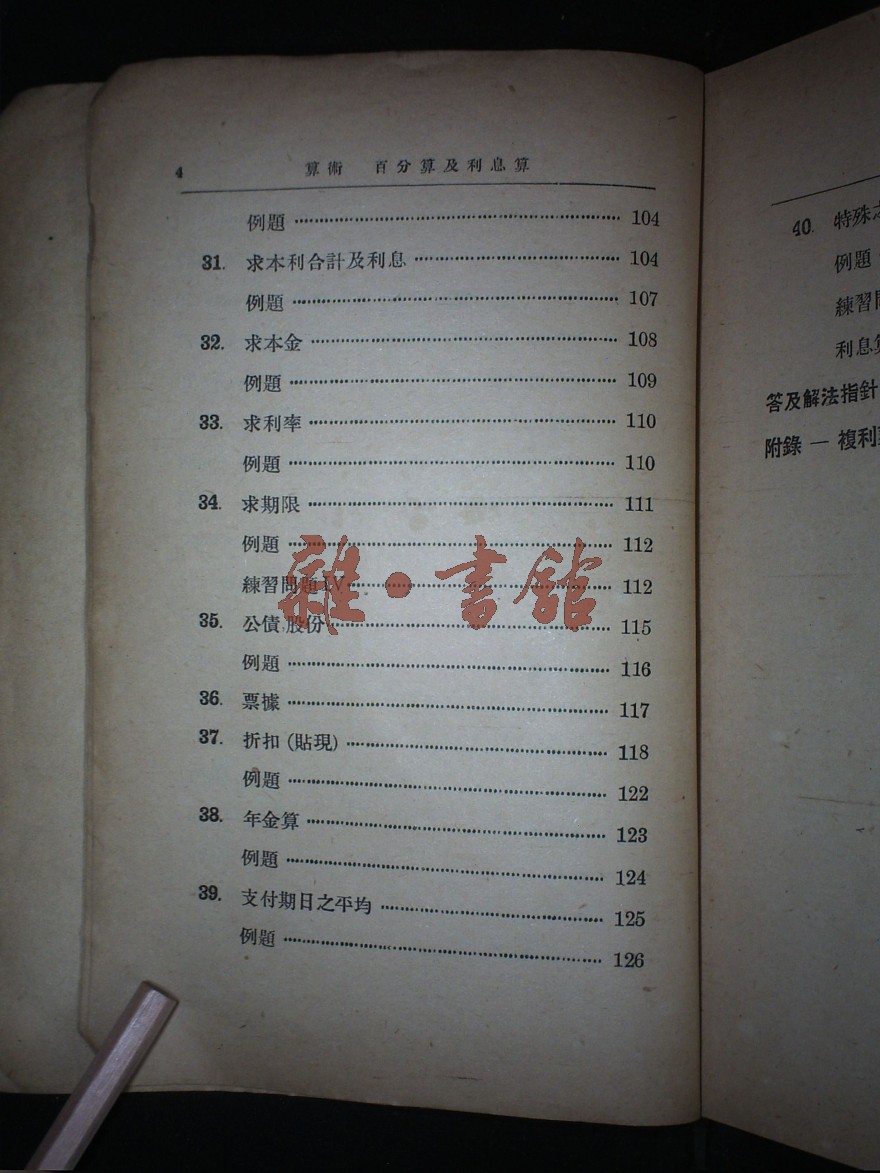 4 算術 百分算及利息算
例題 104
31. 求本利合計及利息 104
例題 107
32. 求本金 108
例題 109
33. 求利率 110
例題 110
34. 求期限 111
例題 112
練習問題 IV 112
35. 公債, 股份 115
例題 116
36. 票據 117
37. 折扣 (貼現) 118
例題 122
38. 年金算 123
例題 124
39. 支付期日之平均 125
例題 126
雜·書館
40. 特殊
例題
練習
利息
答及解法指針
附錄 — 複利